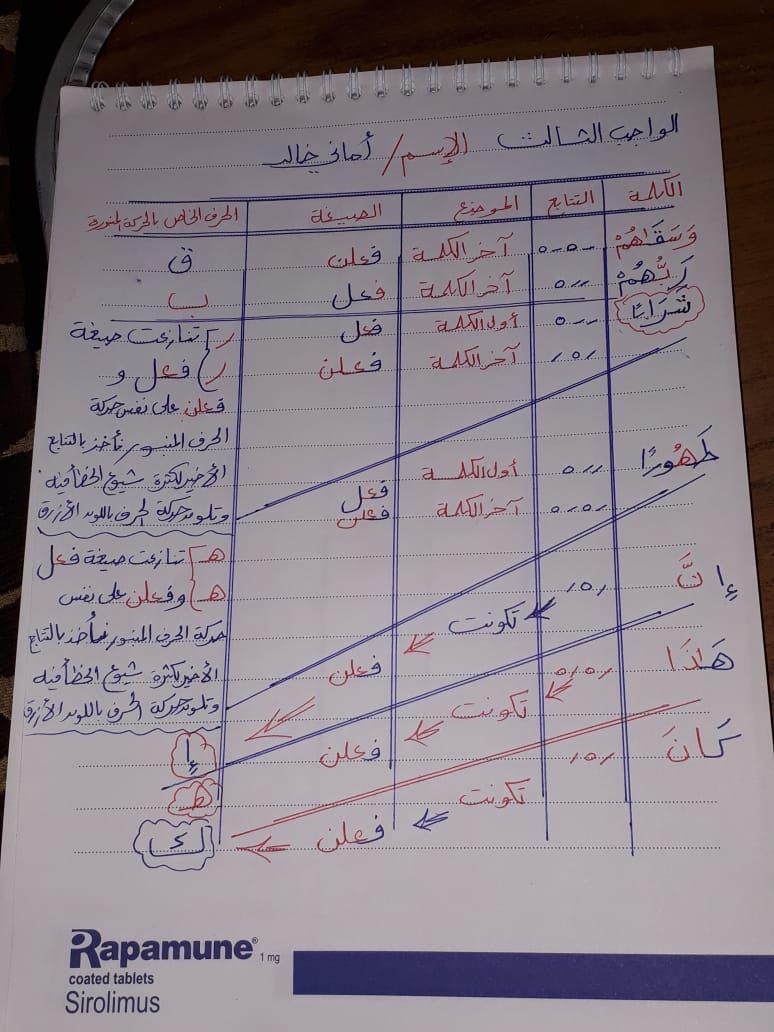 الواجب الثالث الإسم / أماني خالد
الكلمة التتابع الموضع الصيغة الحرف الخاص بالحركة المنورة
وَسَقَاهُمْ ٥-٥-- آخر الكلمة فعلن ق
رَبُّهُمْ ٥-- آخر الكلمة فعل ب
شَرَابًا ٥-- أول الكلمة فعل ر تنازعت صيغة
/٥/ آخر الكلمة فعلن ر فعل و
فعلن على نفس حركة
الحرف المنور نأخذ بالتتابع
الأخير لكثرة شيوع الخطأ فيه
وتلون حركة الحرف باللون الأزرق
طَهُورًا ٥-- أول الكلمة فعل
٥-٥-- آخر الكلمة فعلن
هـ تنازعت صيغة فعل
هـ وفعلن على نفس
حركة الحرف المنور نأخذ بالتتابع
الأخير لكثرة شيوع الخطأ فيه
وتلون حركة الحرف باللون الأزرق
إِنَّ /٥/ تكونت فعلن إ
هَٰذَا ٥/٥/ تكونت فعلن هـ
كَانَ /٥/ تكونت فعلن ك
Rapamune® 1 mg
coated tablets
Sirolimus